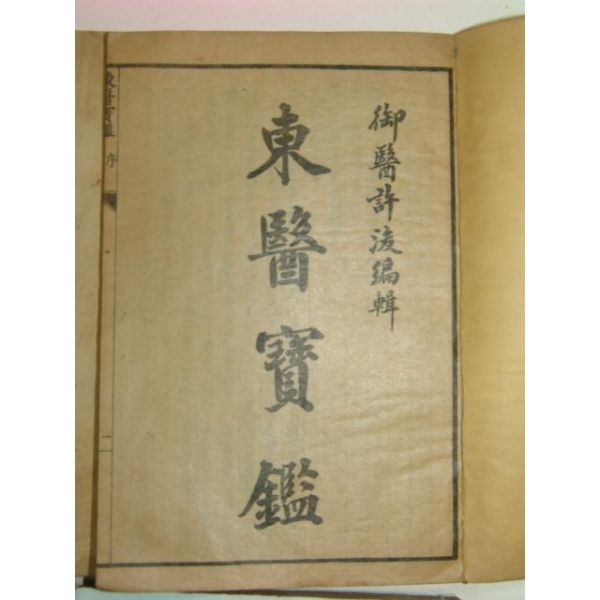 御醫許浚編輯
東醫寶鑑
東醫寶鑑 序
二